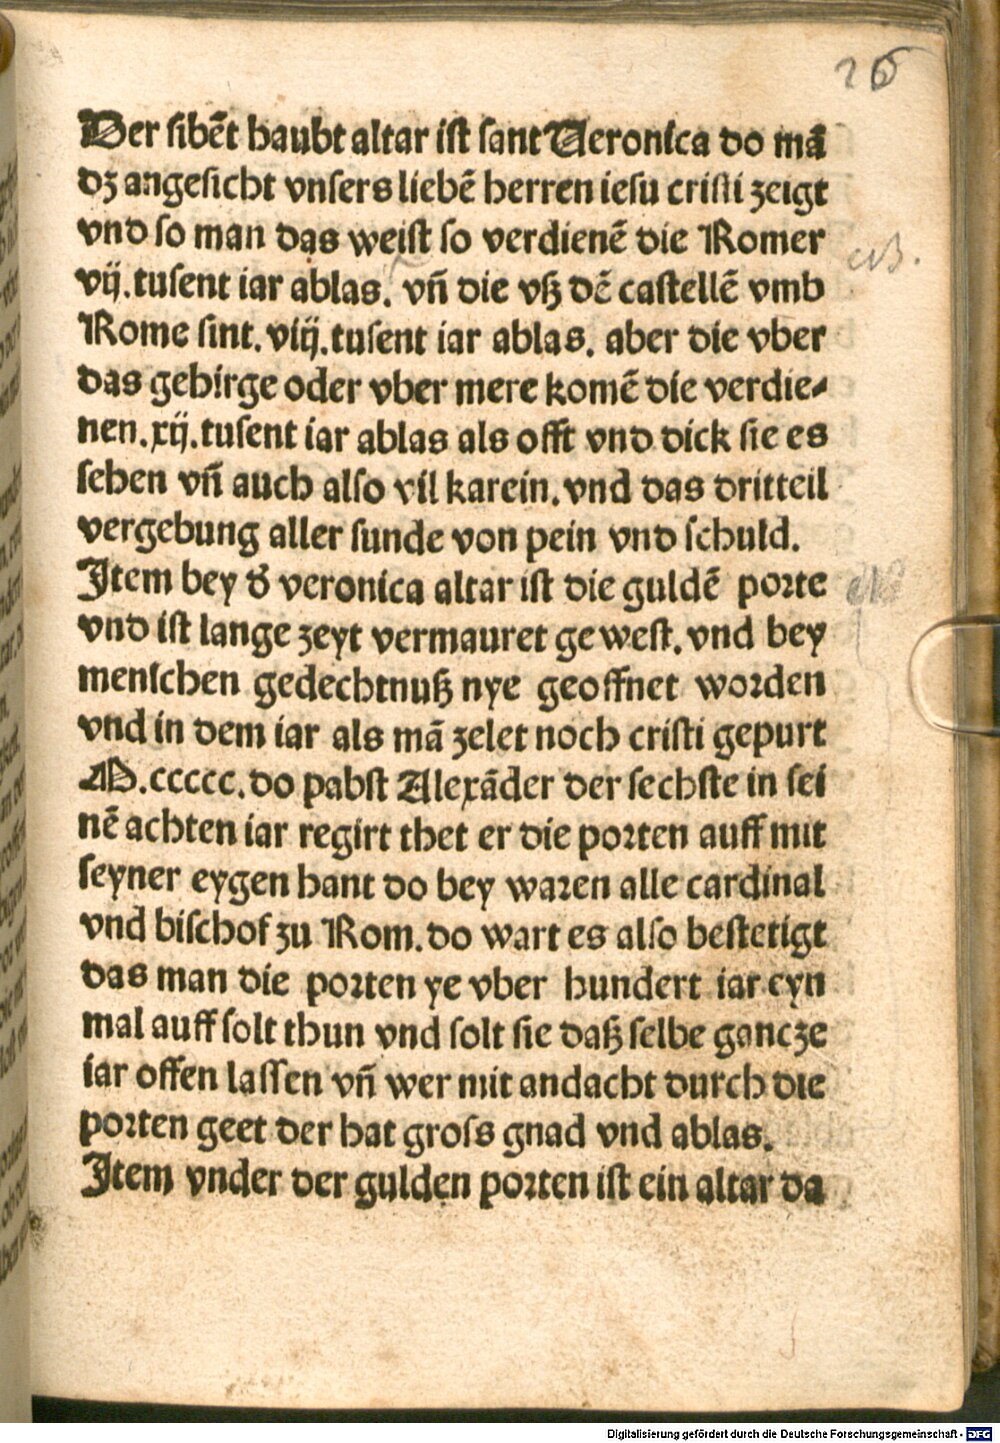 26
Der sibēt haubt altar ist sant Veronica do mā
dz angesicht vnsers liebē herren iesu cristi zeigt
vnd so man das weist so verdienē die Romer
vij.tusent iar ablas. vñ die vß dē castellē vmb
Rome sint.viij.tusent iar ablas. aber die vber
das gebirge oder vber mere komē die verdie⸗
nen.xij.tusent iar ablas als offt vnd dick sie es
sehen vñ auch also vil karein.vnd das dritteil
vergebung aller sunde von pein vnd schuld.
Item bey d' veronica altar ist die guldē porte
vnd ist lange zeyt vermauret gewest.vnd bey
menschen gedechtnuß nye geoffnet worden
vnd in dem iar als mā zelet noch cristi gepurt
M.ccccc.do pabst Alexāder der sechste in sei
nē achten iar regirt thet er die porten auff mit
seyner eygen hant do bey waren alle cardinal
vnd bischof zu Rom.do wart es also bestetigt
das man die porten ye vber hundert iar eyn
mal auff solt thun vnd solt sie daß selbe gancze
iar offen lassen vñ wer mit andacht durch die
porten geet der hat gross gnad vnd ablas.
Item vnder der gulden porten ist ein altar da
Digitalisierung gefördert durch die Deutsche Forschungsgemeinschaft - DFG